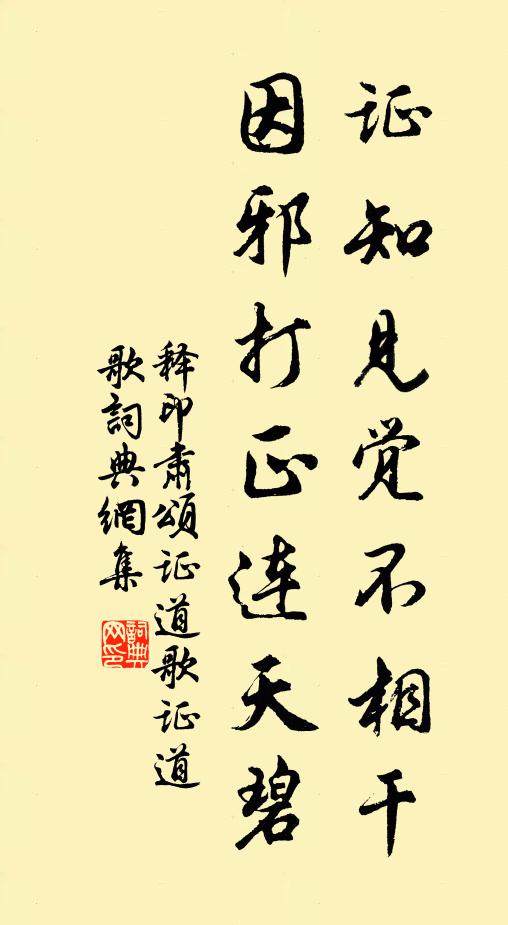 证知见觉不相干
因邪打正连天碧
释印肃頌证道歌证道
歌詞典網集
詞典网印